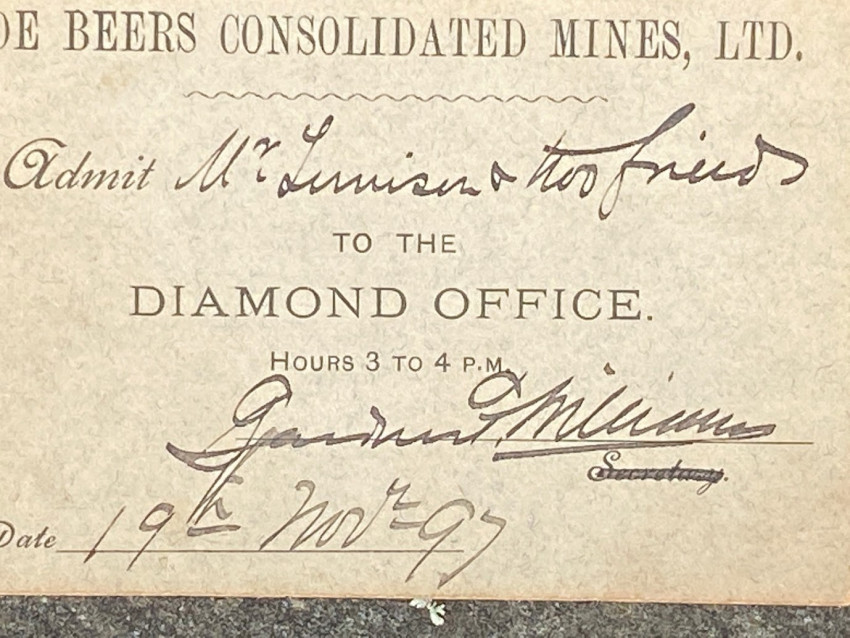 DE BEERS CONSOLIDATED MINES, LTD.
Admit Mr Lennison & two friends
TO THE
DIAMOND OFFICE.
HOURS 3 TO 4 P.M.
Gardner F Williams
Secretary.
Date 19th Novr 97